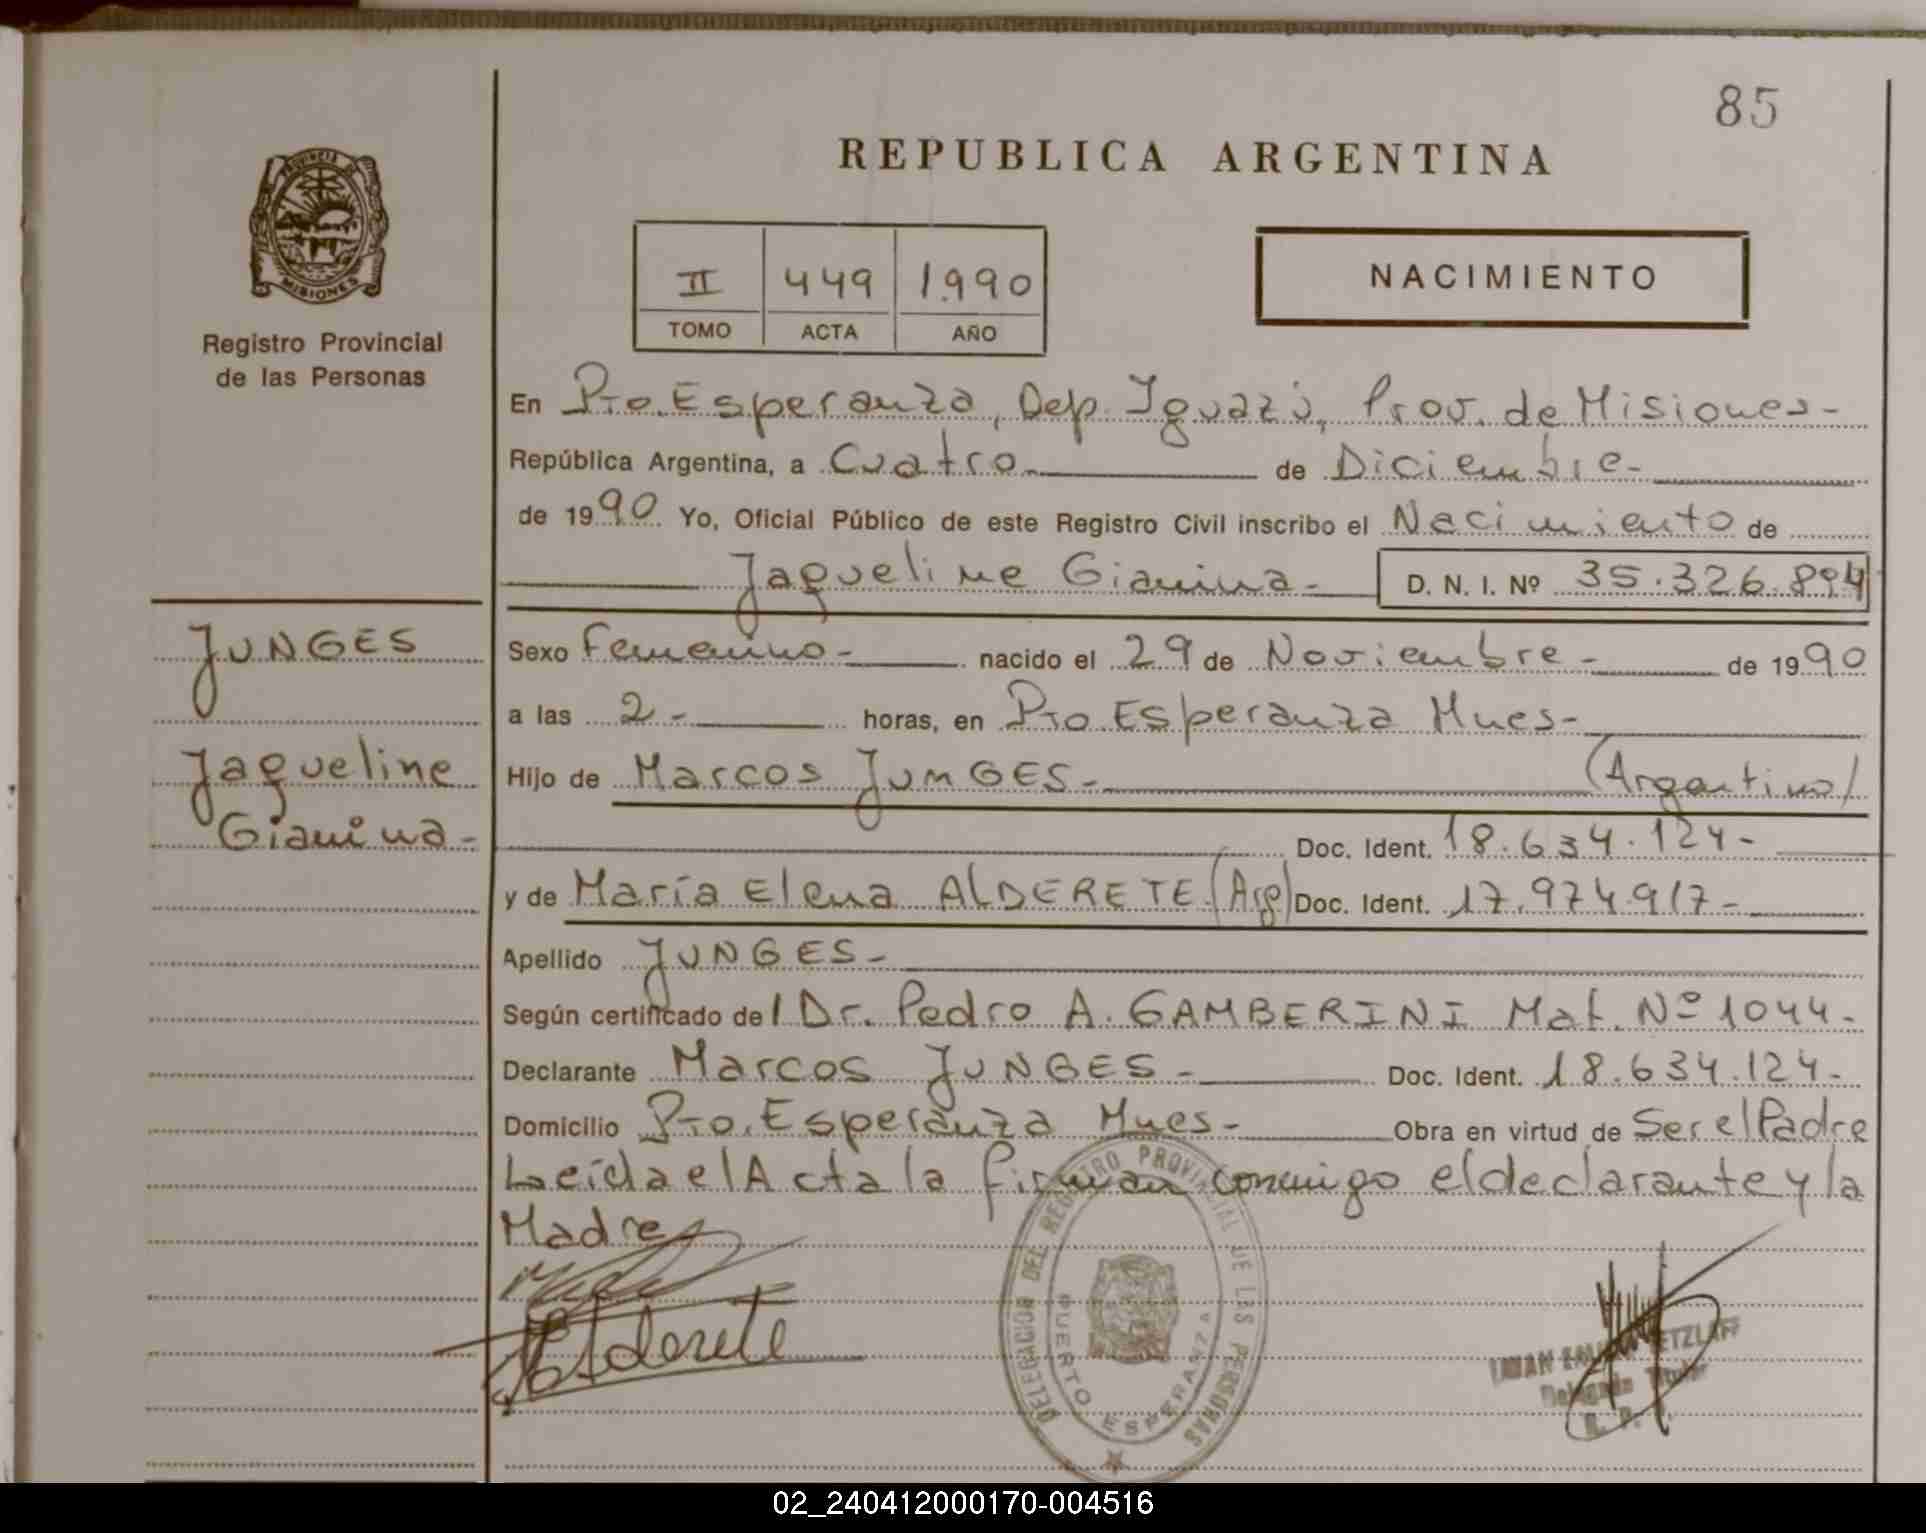 85
REPUBLICA ARGENTINA
PROVINCIA DE
MISIONES
Registro Provincial
de las Personas
II 449 1.990
TOMO ACTA AÑO
NACIMIENTO
En Pto. Esperanza, Dep. Iguazú, Prov. de Misiones-
República Argentina, a Cuatro- de Diciembre-
de 1990 Yo, Oficial Público de este Registro Civil inscribo el Nacimiento de
Jaqueline Gianina- D. N. I. Nº 35.326.894
JUNGES
Jaqueline
Gianina-
Sexo Femenino- nacido el 29 de Noviembre- de 1990
a las 2- horas, en Pto. Esperanza Mnes-
Hijo de Marcos JUNGES- (Argentino)
Doc. Ident. 18.634.124-
y de María Elena ALDERETE (Arg) Doc. Ident. 17.974.917-
Apellido JUNGES-
Según certificado del Dr. Pedro A. GAMBERINI Mat. Nº 1044-
Declarante Marcos JUNGES- Doc. Ident. 18.634.124-
Domicilio Pto. Esperanza Mnes- Obra en virtud de Ser el Padre
Leída el Acta la firman conmigo el declarante y la
Madre
Alderete
DELEGACION DEL REGISTRO PROVINCIAL DE LAS PERSONAS
PUERTO ESPERANZA
Delegado Titular
02_240412000170-004516